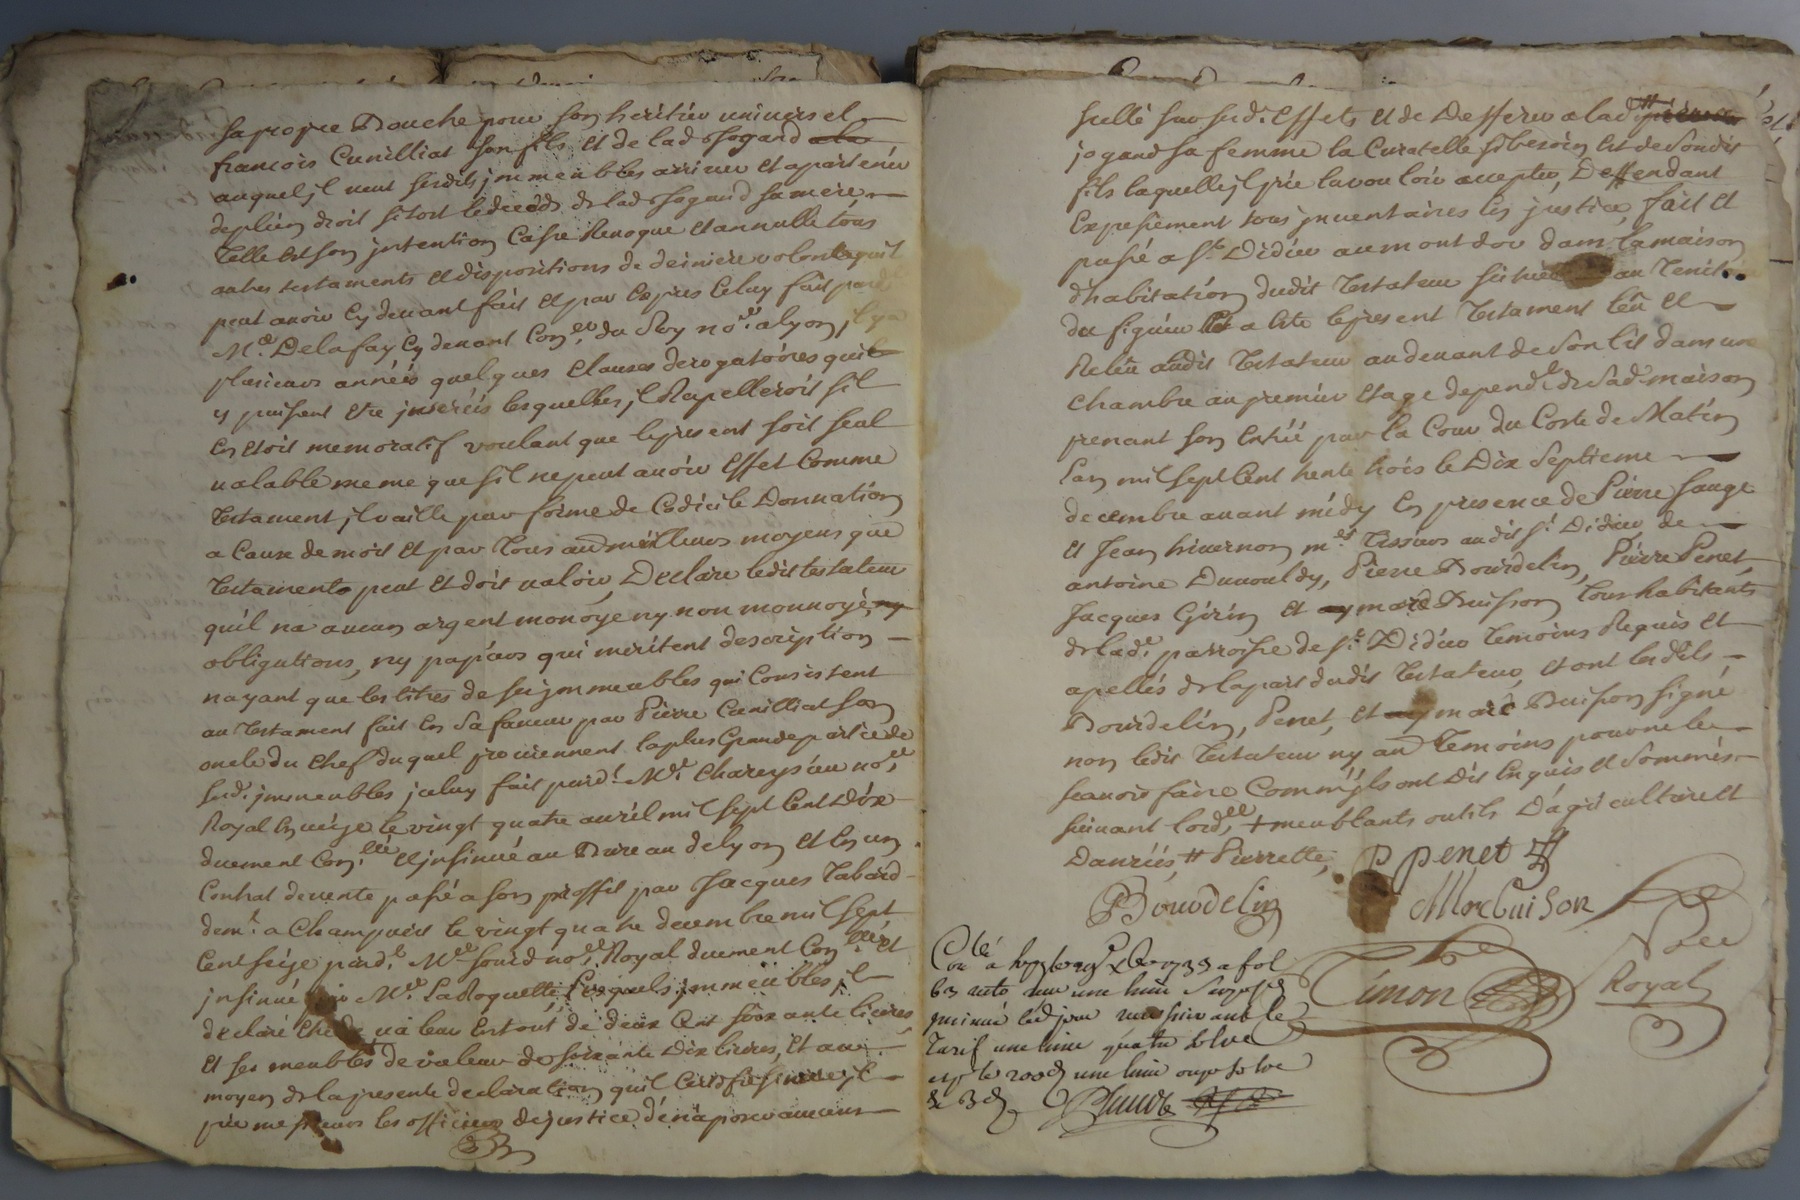 sa propre Bouche pour son heritier univers el
francois Cunilliat son fils et de lad Jogand
auquel jl veut sesdits jmmeubles arriver et apartenir
de plein droit sitost le deceds de lad Jogand sa mere,
Telle est son jntention Casse Revoque et annulle tous
autres testaments et dispositions de derniere volonte quil
peut avoir cy devant fait et par expres Celuy fait pard
Me. Delafay cy devant Con.er du Roy no.re a lyon, jl y a
plusieurs années quelques Clauses derogatoires quil
y puissent etre jnserées lesquelles jl Rapelleroit sil
en etoit memoratif voulant que le present soit seul
valable meme que sil ne peut avoir effet Comme
testament jl vaille par forme de Codicile Donnation
a Cause de mort et par tous meilleurs moyens que
testaments peut et doit valoir, Declare ledit testateur
quil na aucun argent monoye ny non monnoyé,
obligations, ny papiers qui meritent description
nayant que les titres de ses jmmeubles qui Consistent
au testament fait en sa faveur par Pierre Cunilliat son
oncle du chef duquel proviennent la plus Grande partie de
sesd. jmmeubles jceluy fait pard.t Me. Chareysieu no.re
Royal en vieye le vingt quatre avril mil sept Cent dix
duement Con.llé et jnsinué au Bureau de lyon et en un
Contrat de vente passé a son proffit par Jacques Tabard
dem.t a Champvers le vingt quatre decembre mil sept
Cent seize pard.t Me. Sourd no.re Royal duement Con.llé et
jnsinué par Me. La Roquette, Lesquels jmmeubles jl
declaré etre de valeur en tout de deux Cent soixante livres,
et ses meubles de valeur de soixante Dix livres, et au
moyen de la presente declaration quil Certifie sincere jl
prie messieurs les officiers de justice de napozer aucuns
scellé sur sesd. effets et de Defferer a lad #
jogand sa femme la Curatelle si besoin est de sondit
fils laquelle jl prie la vouloir accepter, Deffendant
Expressement tous jnventaires en justice, fait et
passé a St. Didier au mont dor dans la maison
dhabitation dudit testateur situee au Territ
du figuier a lite le present testament leu et
Releu audit testateur au devant de son lit dans une
chambre au premier etage depend.te de sad. maison
prenant son entrée par la Cour du Coste de Matin
Lan mil sept Cent trente trois le Dix septieme
decembre avant midy en presence de Pierre Sauge
et Jean hivernon m.es Tissurs audit St. Didier de
antoine Duvouldy, Pierre Bourdelin, Pierre Penet,
Jacques Gerin et marc Buisson tous habitants
de lad. parroisse de St. Didier temoins Requis et
apellés de la part dudit testateur, et ont lesdits
Bourdelin, Penet, et marc Buisson signé
non ledit testateur ny au.s temoins pour ne le
scavoir faire Comm jls ont dit enquis et sommés
suivant lord.ce, + meublants outils Dagriculture et
Danrées, # Pierrette,
P penet
Bourdelin
Marc buison
Simon
No.re
Royal